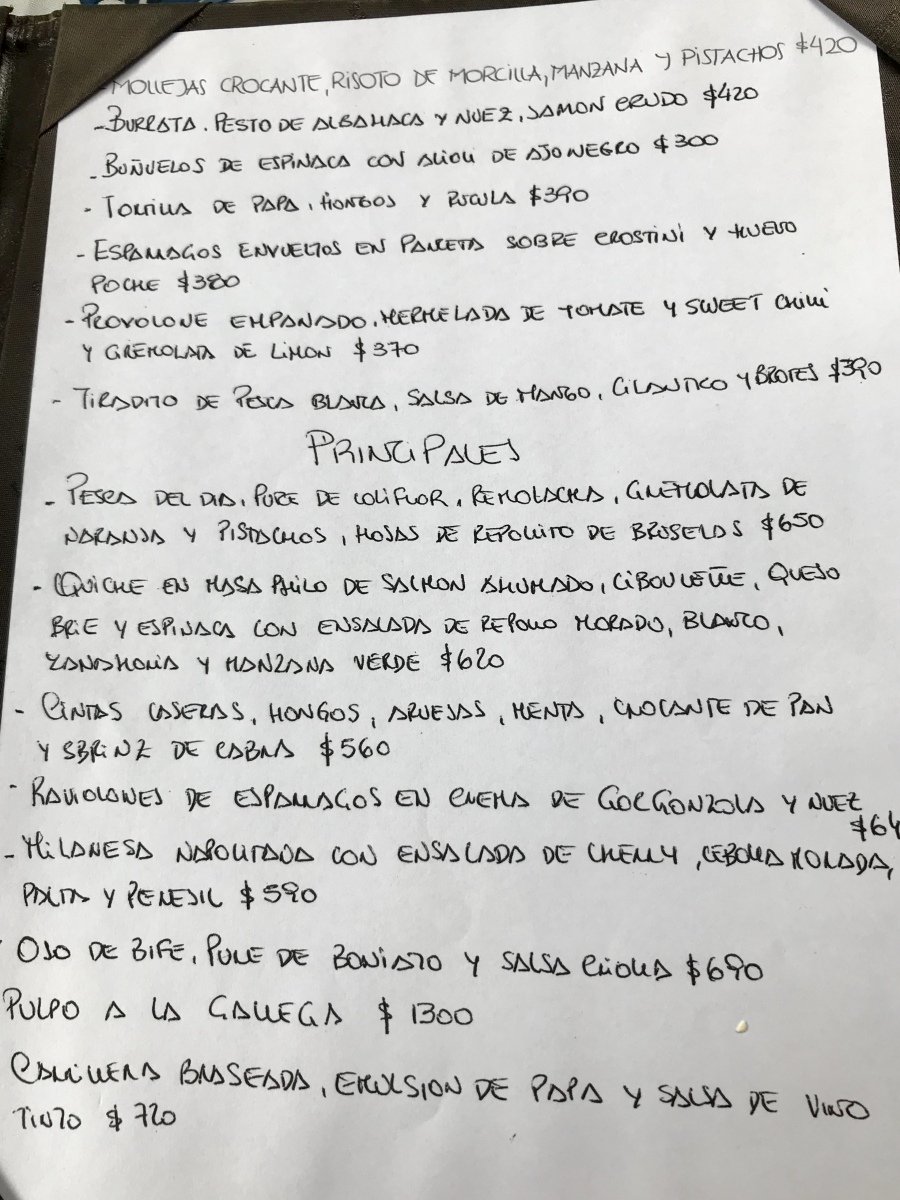 - MOLLEJAS CROCANTE, RISOTO DE MORCILLA, MANZANA Y PISTACHOS $420
- BURRATA. PESTO DE ALBAHACA Y NUEZ, JAMON CRUDO $420
- BUÑUELOS DE ESPINACA CON ALIOLI DE AJO NEGRO $300
- TORTILLA DE PAPA, HONGOS Y RUCULA $390
- ESPARRAGOS ENVUELTOS EN PANCETA SOBRE CROSTINI Y HUEVO
POCHE $380
- PROVOLONE EMPANADO, MERMELADA DE TOMATE Y SWEET CHILI
Y GREMOLATA DE LIMON $370
- TIRADITO DE PESCA BLANCA, SALSA DE MANGO, CILANTRO Y BROTES $390
PRINCIPALES
- PESCA DEL DIA, PURE DE COLIFLOR, REMOLACHA, GREMOLATA DE
NARANJA Y PISTACHOS, HOJAS DE REPOLLITO DE BRUSELAS $650
- QUICHE EN MASA PHILO DE SALMON AHUMADO, CIBOULETTE, QUESO
BRIE Y ESPINACA CON ENSALADA DE REPOLLO MORADO, BLANCO,
ZANAHORIA Y MANZANA VERDE $620
- CINTAS CASERAS, HONGOS, ARVEJAS, MENTA, CROCANTE DE PAN
Y SBRINZ DE CABRA $560
- RAVIOLONES DE ESPARRAGOS EN CREMA DE GORGONZOLA Y NUEZ
$64
- MILANESA NAPOLITANA CON ENSALADA DE CHERRY, CEBOLLA MORADA,
PALTA Y PEREJIL $590
- OJO DE BIFE, PURE DE BONIATO Y SALSA CRIOLLA $690
PULPO A LA GALLEGA $1300
CARRILLERA BRASEADA, EMULSION DE PAPA Y SALSA DE VINO
TINTO $720